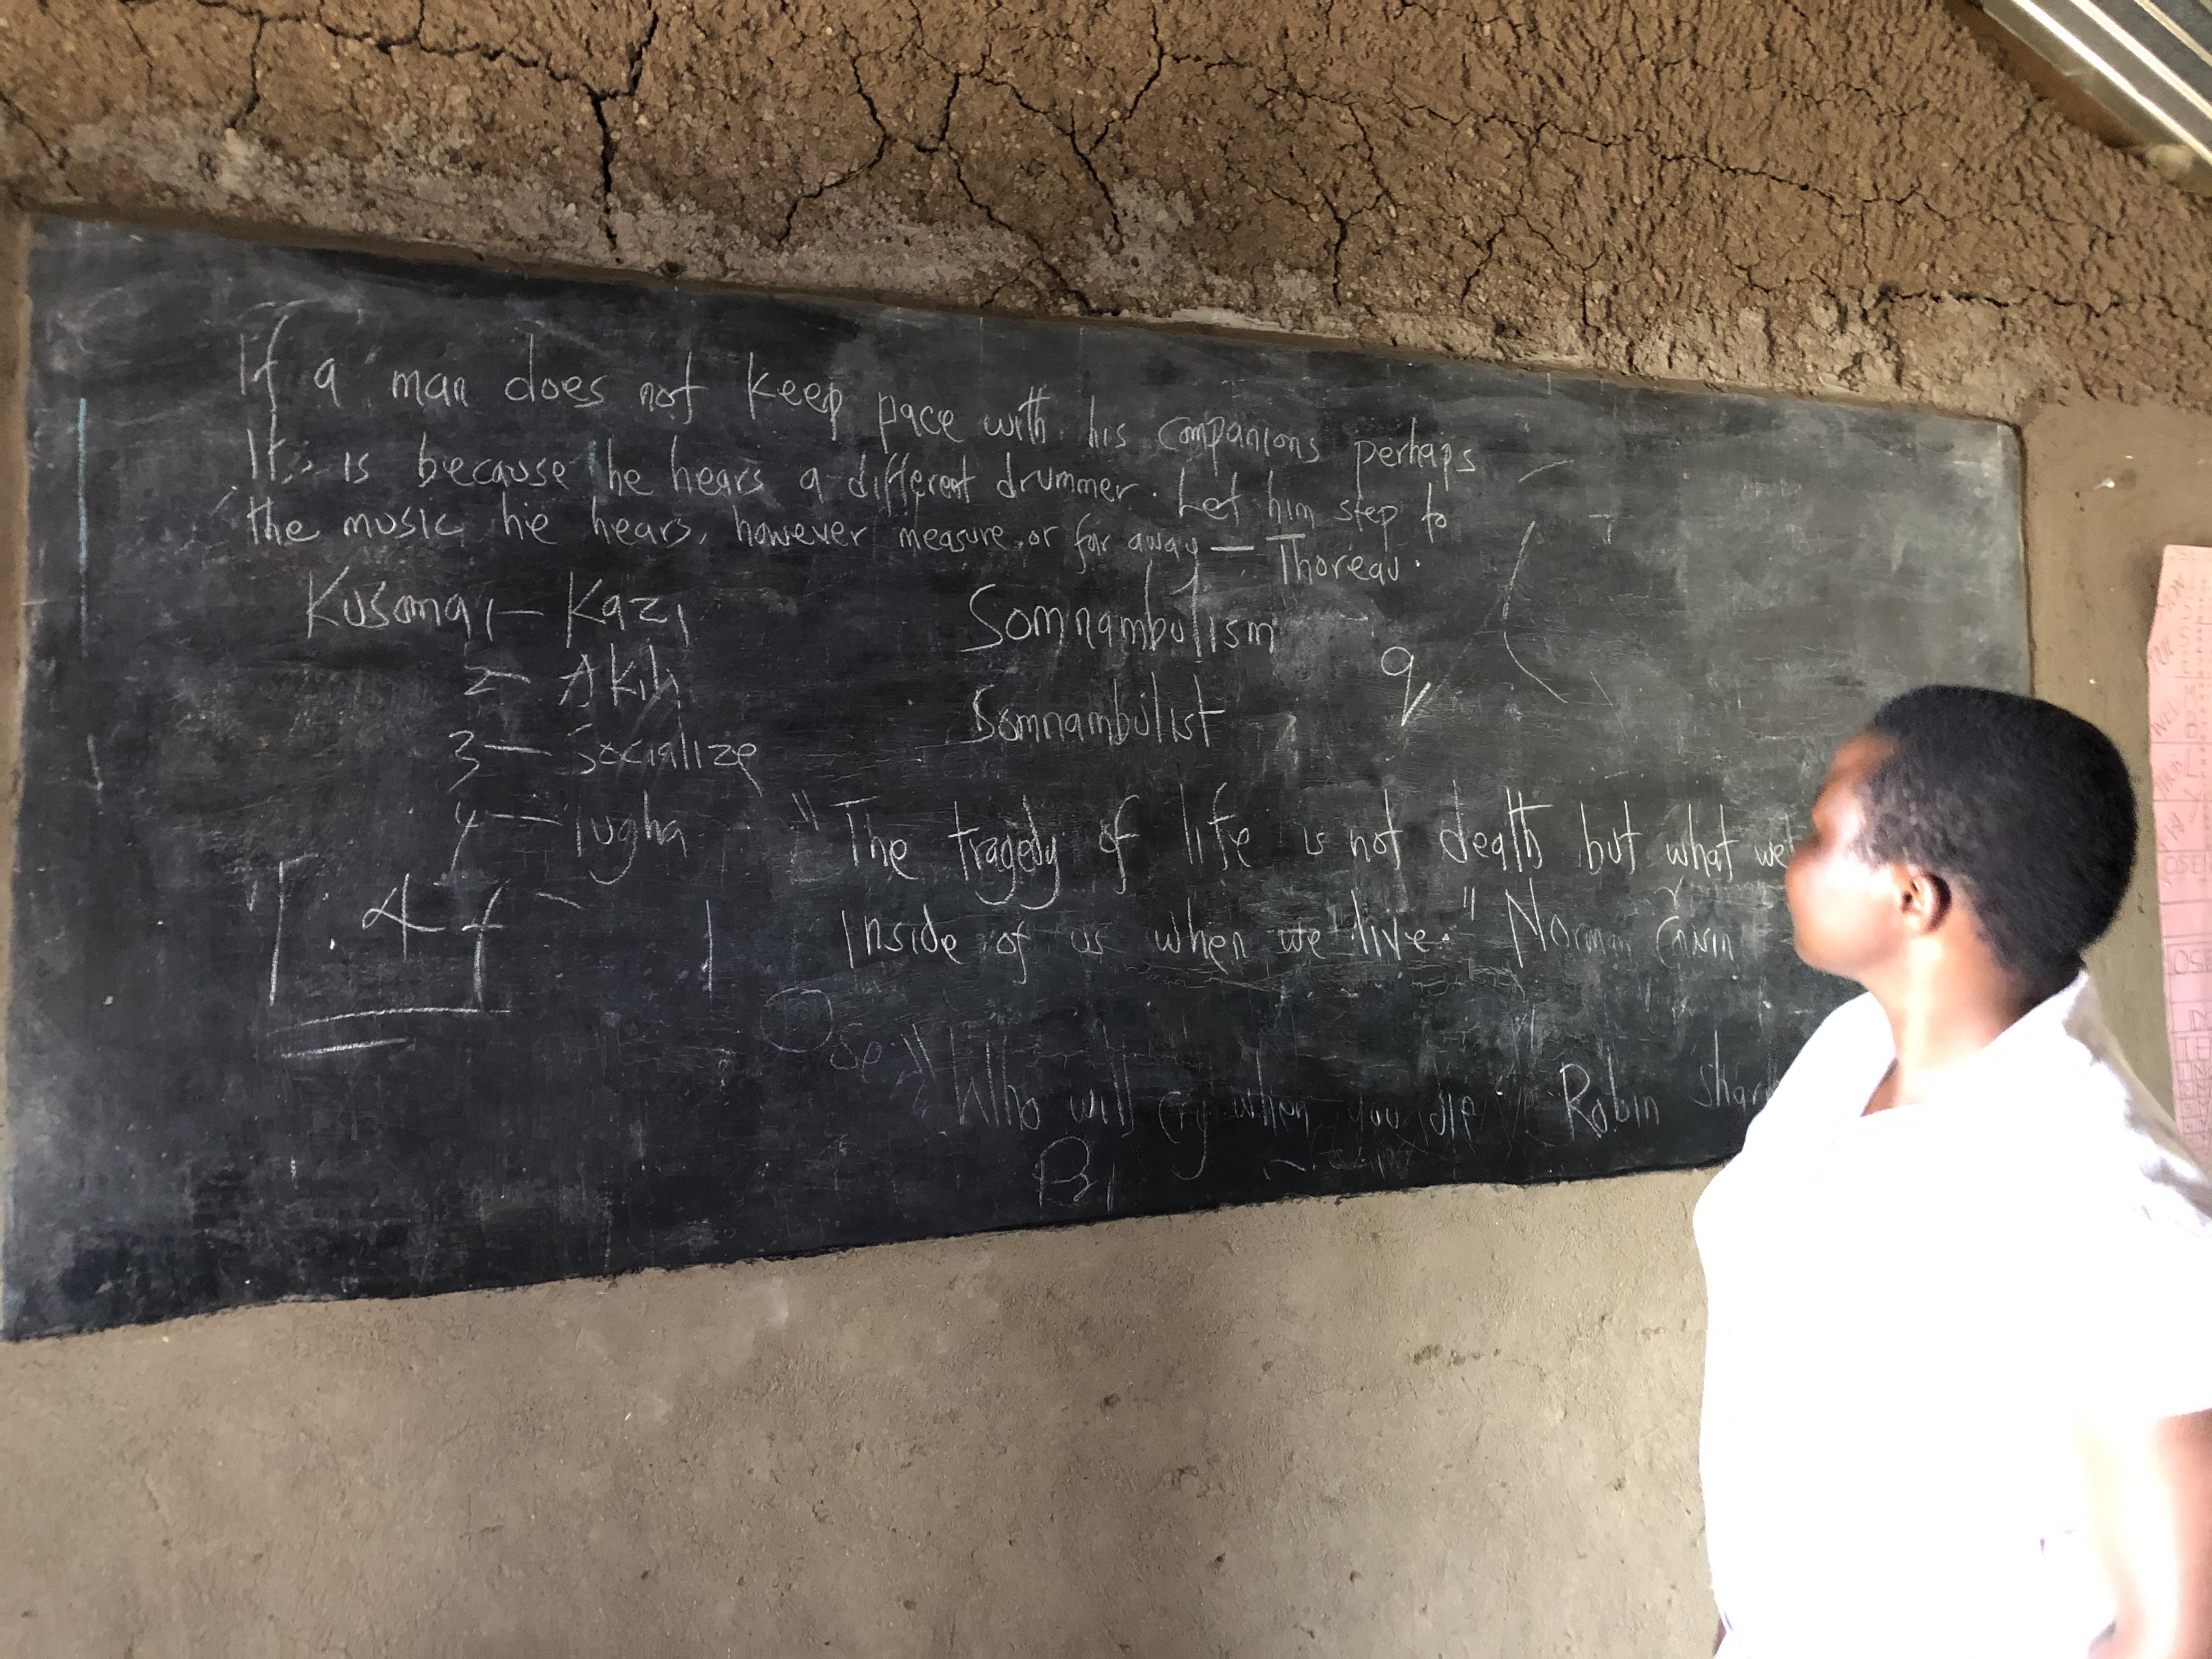 If a man does not keep pace with his companions perhaps
It is because he hears a different drummer. Let him step to
the music he hears, however measure or far away — Thoreau.
Kusoma 1 — Kazi
2 — Akili
3 — Socialize
4 — lugha
Somnambulism
Somnambulist
9
"The tragedy of life is not death but what we
Inside of us when we live." Norman
"Who will cry when you die" Robin